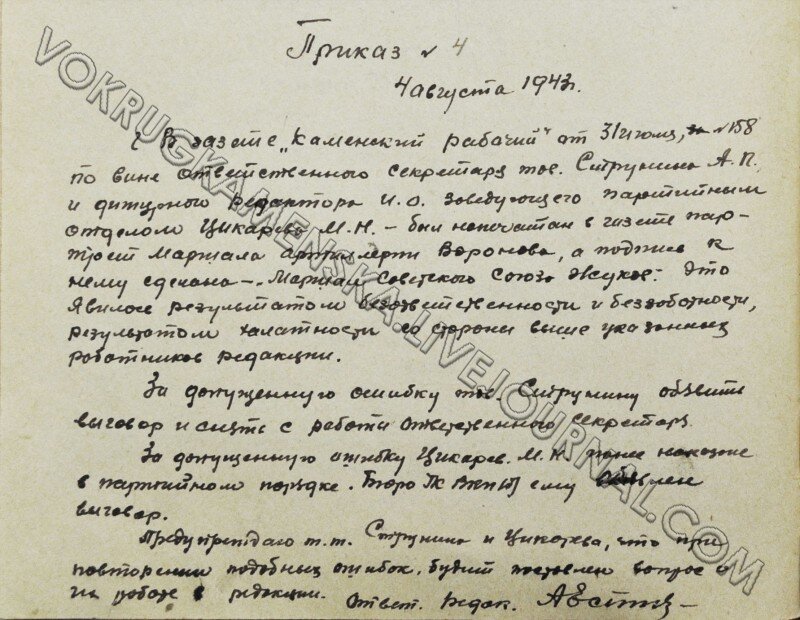 Приказ № 4
4 августа 1943 г.
В газете „Каменский рабочий“ от 31 июля, № 158
по вине ответственного секретаря тов. Струнина А.П.
и дежурного редактора И.О. заведующего партийным
отделом Цикарева М.Н. – был напечатан в газете пор-
трет Маршала артиллерии Воронова, а подпись к
нему сделана – „Маршал Советского Союза Жуков“. Это
явилось результатом безответственности и беззаботности,
результатом халатности со стороны выше указанных
работников редакции.
За допущенную ошибку тов. Струнину объявить
выговор и снять с работы ответственного секретаря.
За допущенную ошибку Цикарев М.Н.
в партийном порядке. Бюро ГК ВКП(б) ему объявлен
выговор.
Предупреждаю т.т. Струнина и Цикарева, что при
повторении подобных ошибок, будет поставлен вопрос о
их работе в редакции. Ответ. редак.
VOKRUGKAMENSKA.LIVEJOURNAL.COM